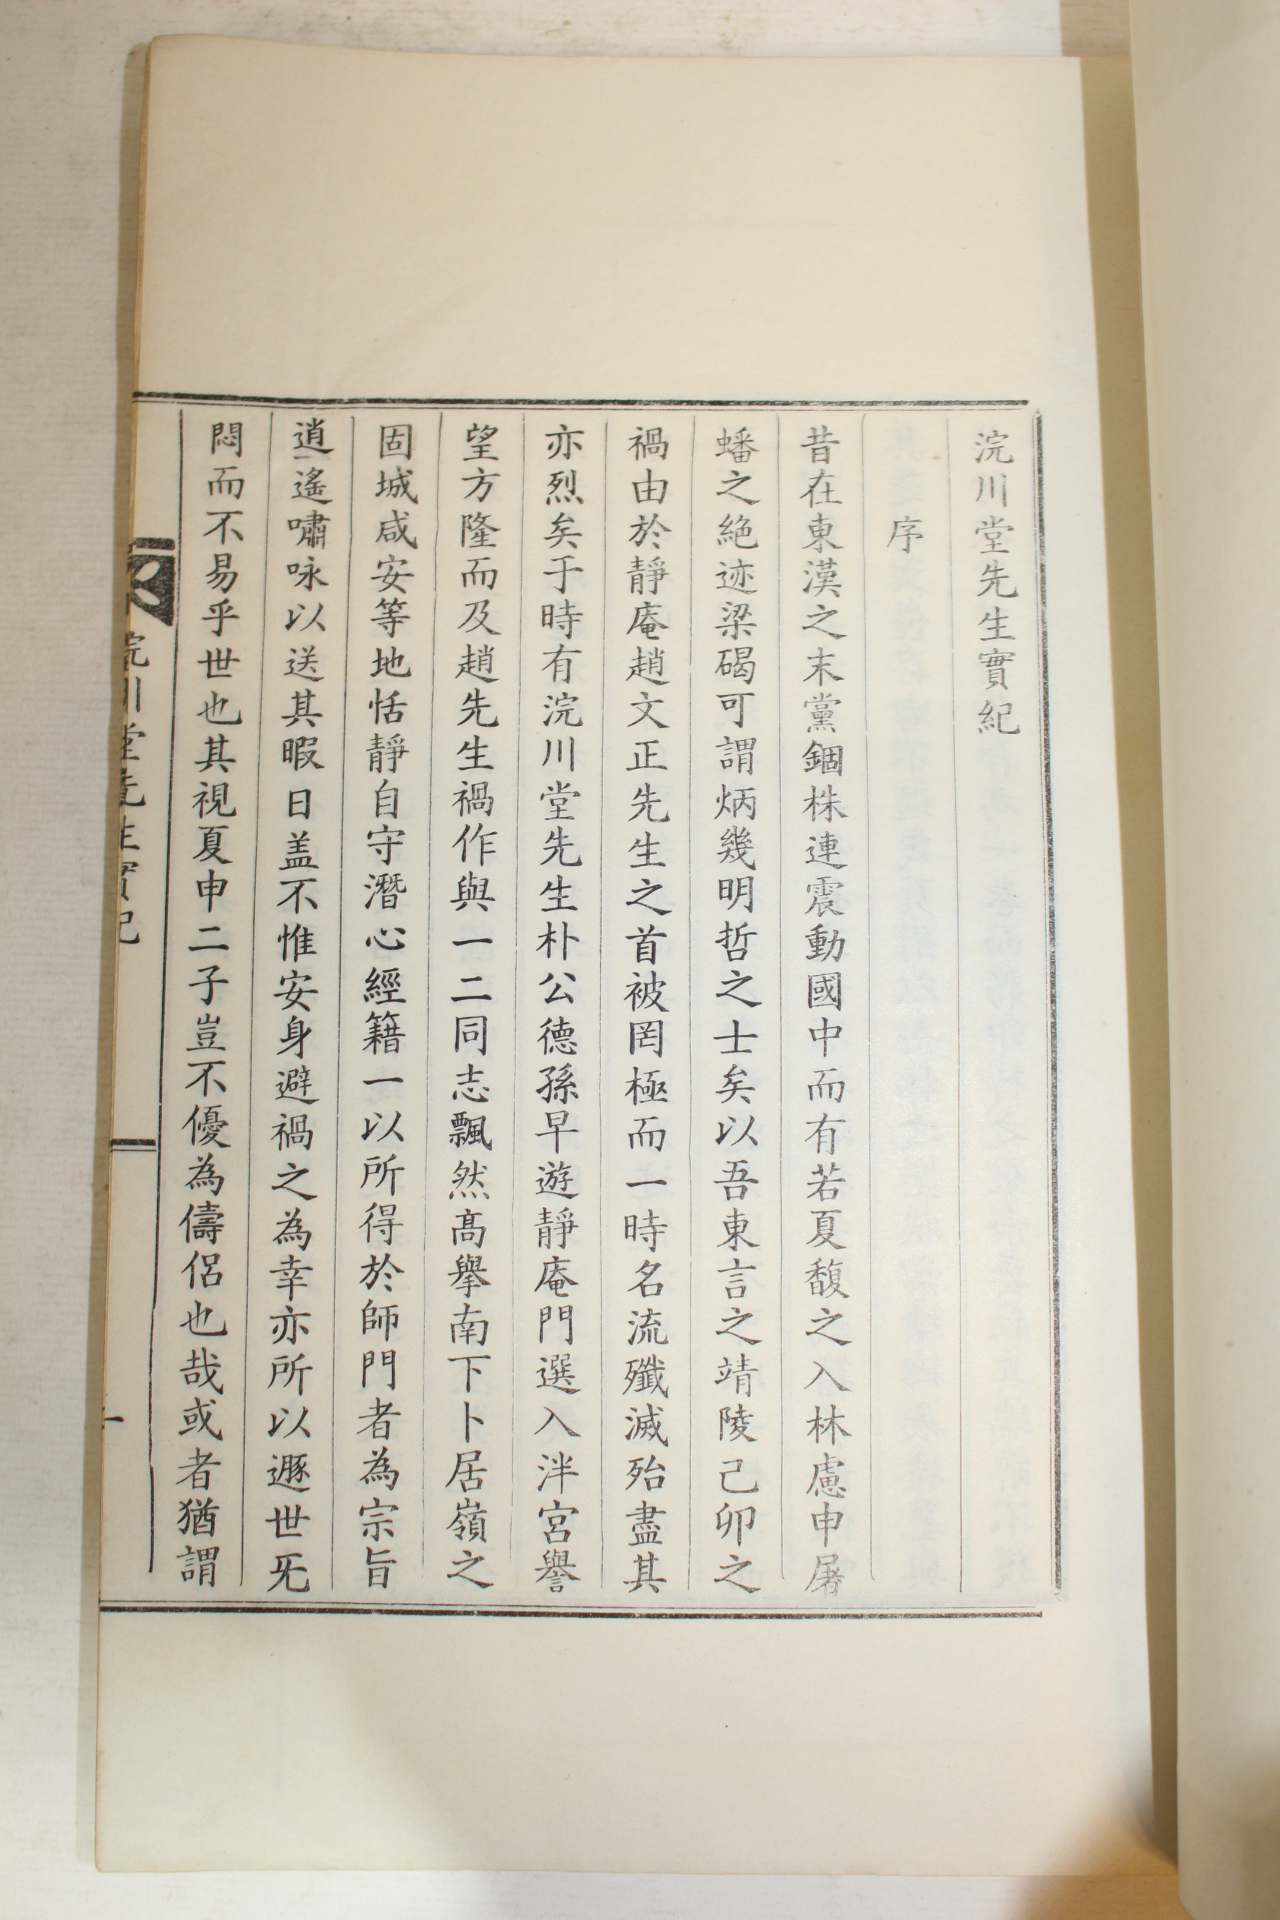 浣川堂先生實紀
序
昔在東漢之末黨錮株連震動國中而有若夏馥之入林慮申屠
蟠之絶迹梁碭可謂炳幾明哲之士矣以吾東言之靖陵己卯之
禍由於靜庵趙文正先生之首被罔極而一時名流殲滅殆盡其
亦烈矣于時有浣川堂先生朴公德孫早遊靜庵門選入泮宮譽
望方隆而及趙先生禍作與一二同志飄然高擧南下卜居嶺之
固城咸安等地恬靜自守潛心經籍一以所得於師門者為宗旨
逍遙嘯咏以送其暇日盖不惟安身避禍之為幸亦所以遯世旡
悶而不易乎世也其視夏申二子豈不優為儔侶也哉或者猶謂
浣川堂先生實紀
一